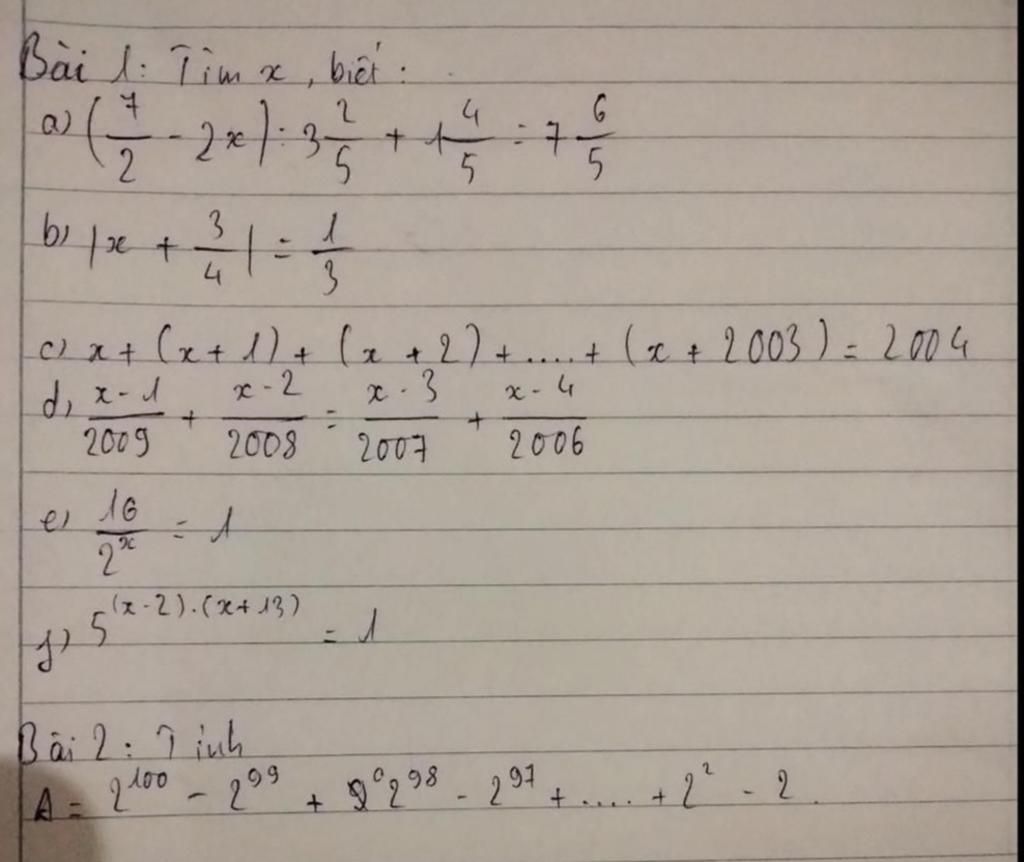 Bài 1: Tìm x, biết:
a) (7/2 - 2x) : 3 2/5 + 1 4/5 = 7 6/5
b) |x + 3/4| = 1/3
c) x + (x + 1) + (x + 2) + .... + (x + 2003) = 2004
d) x - 1/2009 + x - 2/2008 = x - 3/2007 + x - 4/2006
e) 16/2^x = 1
f) 5^(x-2).(x+13) = 1
Bài 2: Tính
A = 2^100 - 2^99 + 2^98 - 2^97 + ..... + 2^2 - 2.